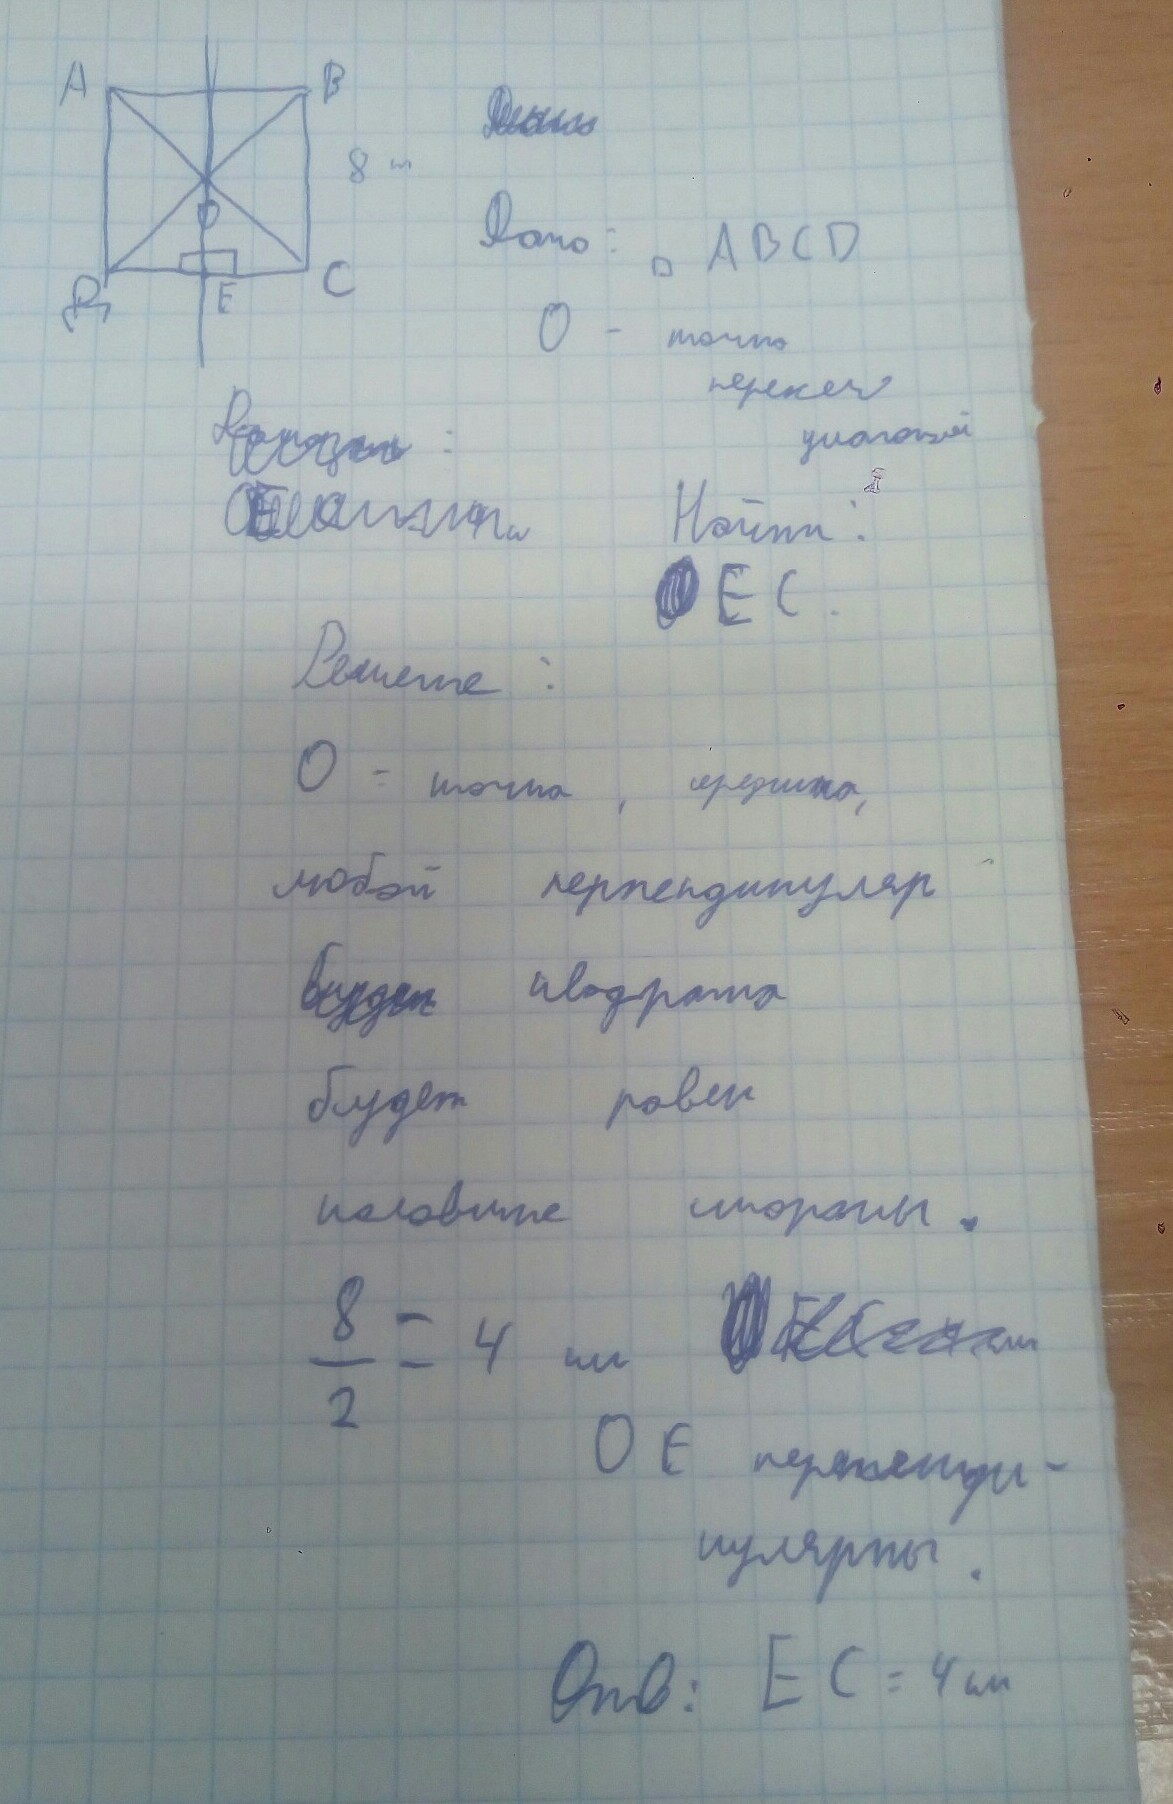 A B
8 см
D E C
O
Дано: □ ABCD
O - точка
пересеч
диагоналей
Найти:
EC.
Решение:
O - точка, середина,
любой перпендикуляр
квадрата
будет равен
половине стороны.
8/2 = 4 см
OE перпенди-
кулярны.
Отв: EC = 4 см